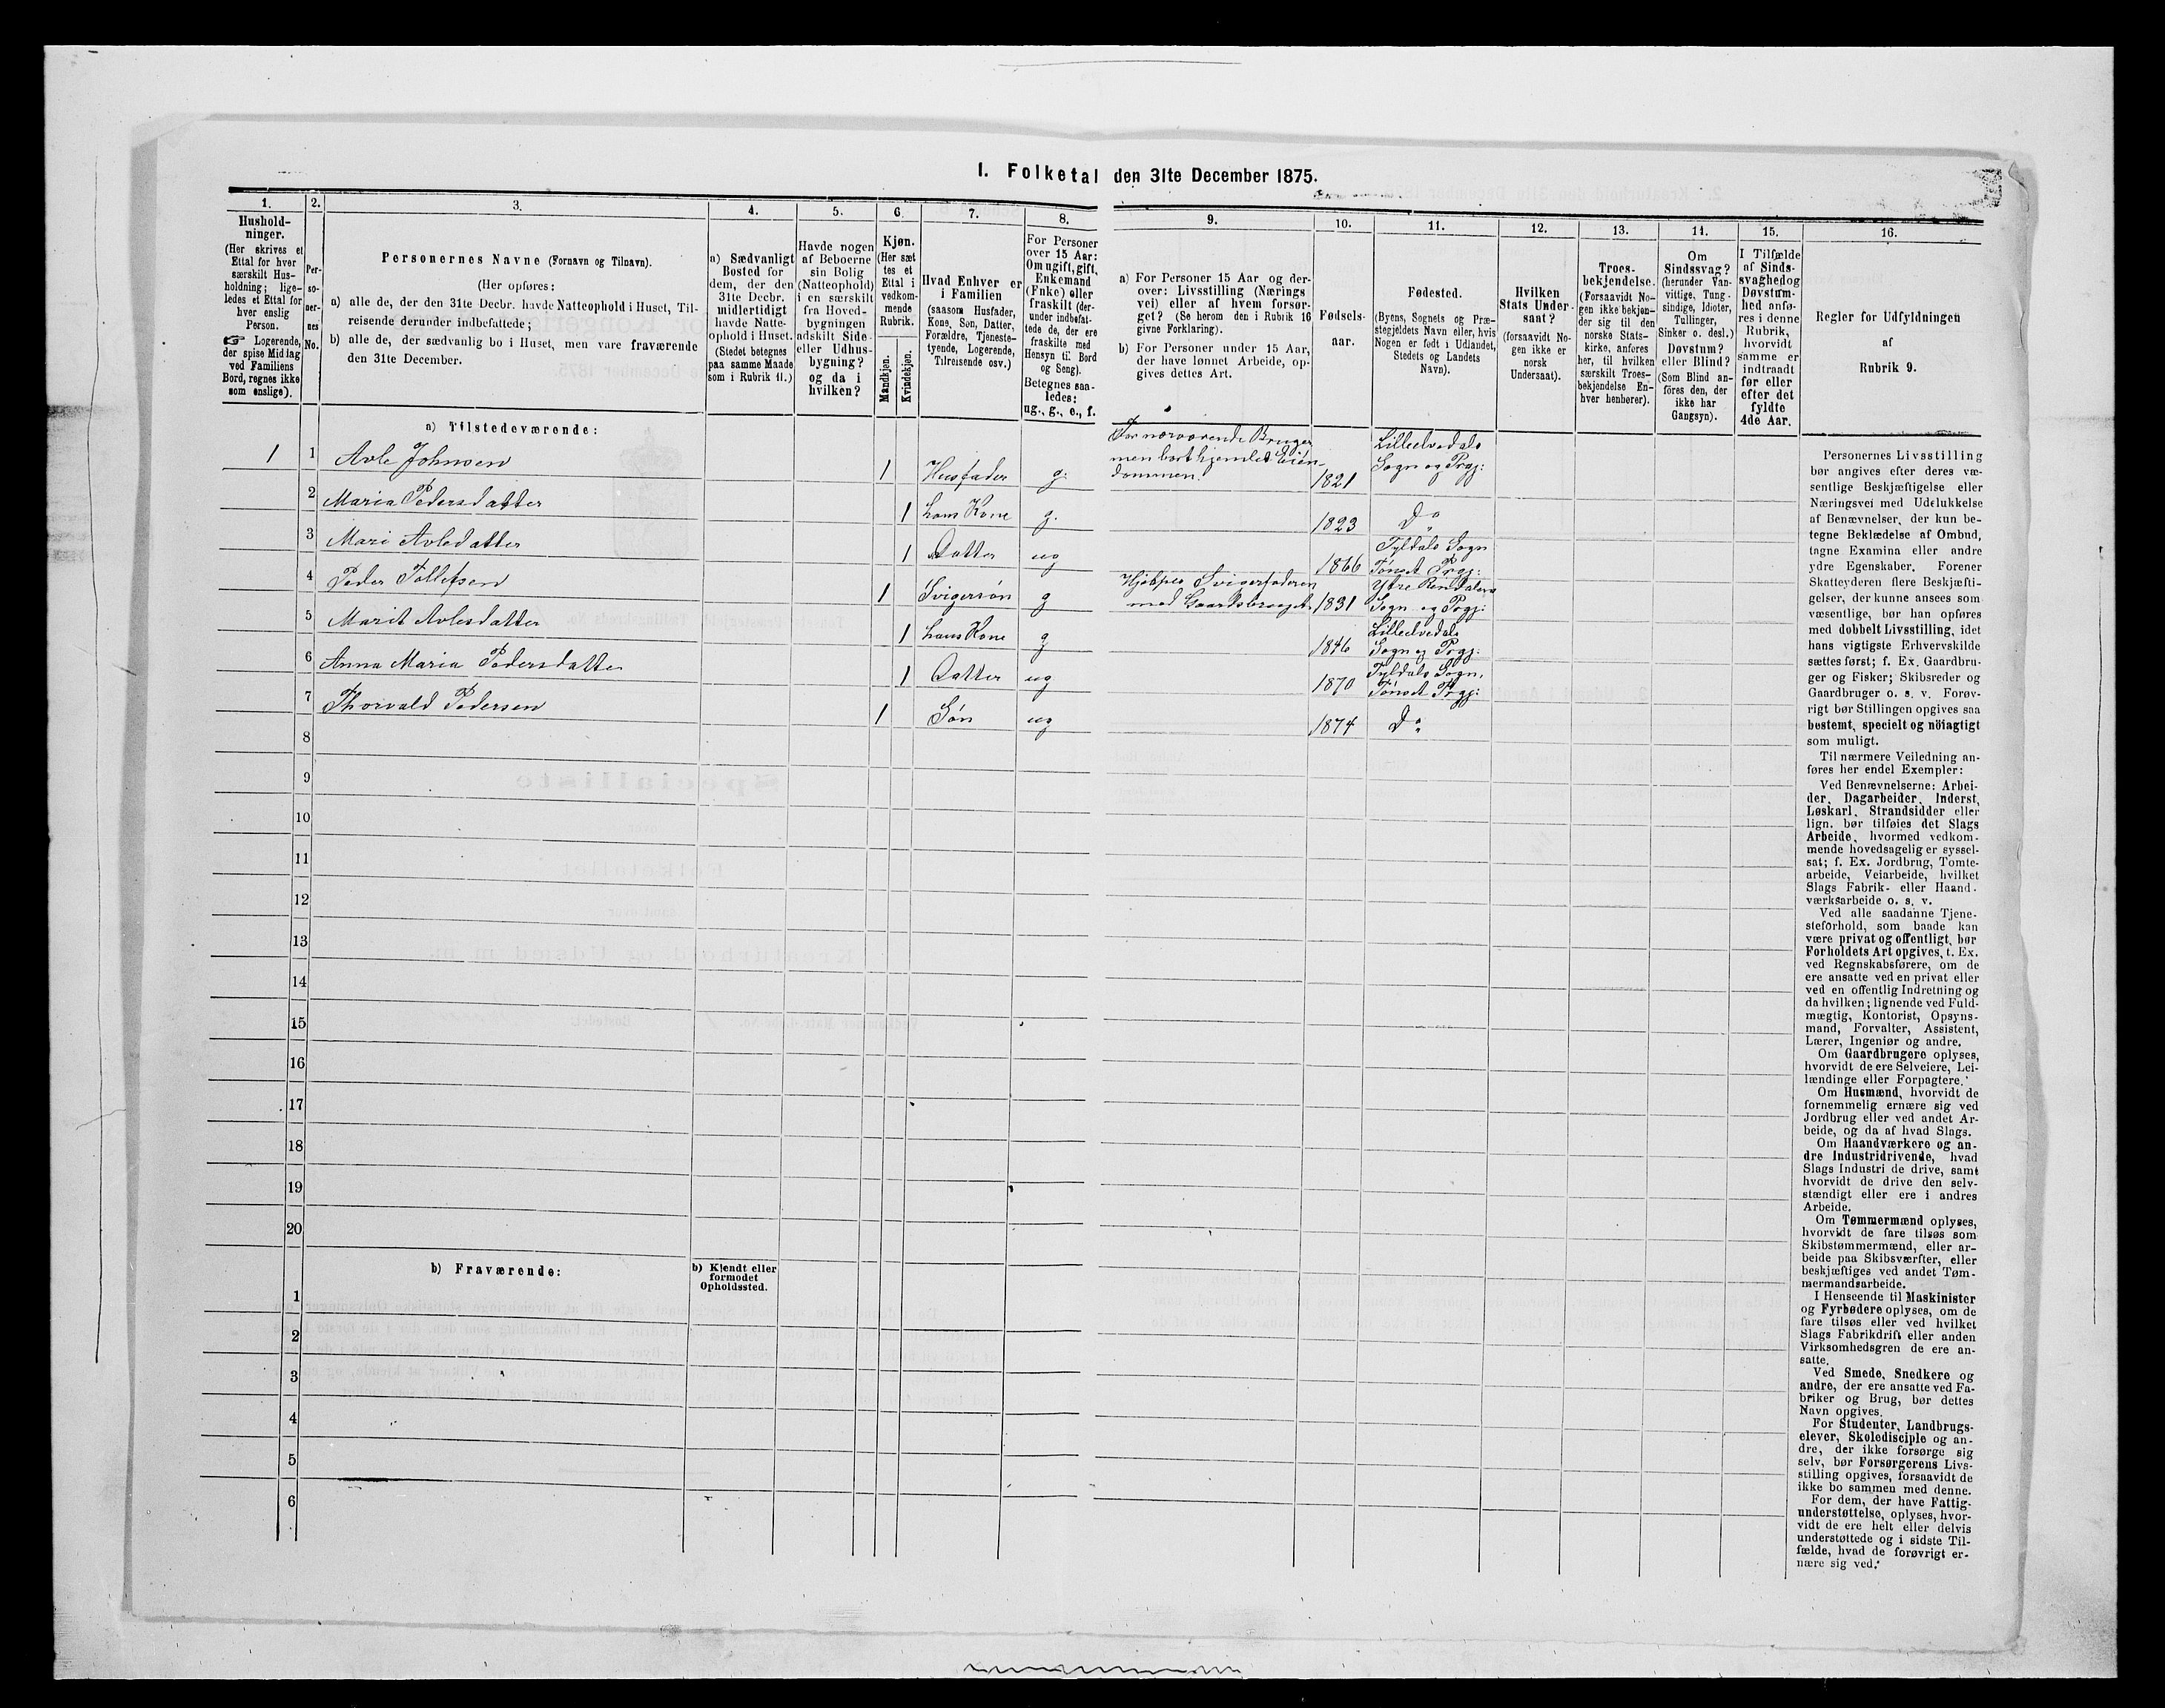 I. Folketal den 31te December 1875.
1.
Hushold-
ninger.
(Her skrives et
Ettal for hver
særskilt Hus-
holdning; lige-
ledes et Ettal for
hver enslig
Person.
☞ Logerende,
der spise Middag
ved Familiens
Bord, regnes ikke
som enslige).
2.
Per-
so-
ner-
nes
No.
3.
Personernes Navne (Fornavn og Tilnavn).
(Her opføres:
a) alle de, der den 31te Decbr. havde Natteophold i Huset, Til-
reisende derunder indbefattede;
b) alle de, der sædvanlig bo i Huset, men vare fraværende
den 31te December.
4.
a) Sædvanligt
Bosted for
dem, der den
31te Decbr.
midlertidigt
havde Natte-
ophold i Huset.
(Stedet betegnes
paa samme Maade
som i Rubrik 11.)
5.
Havde nogen
af Beboerne
sin Bolig
(Natteophold)
i en særskilt
fra Hoved-
bygningen
adskilt Side-
eller Udhus-
bygning?
og da i
hvilken?
6.
Kjøn.
(Her sæt-
tes et
Ettal i
vedkom-
mende
Rubrik.
Mandkjøn.
Kvindekjøn.
7.
Hvad Enhver er
i Familien
(saasom Husfader,
Kone, Søn, Datter,
Forældre, Tjeneste-
tyende, Logerende,
Tilreisende osv.)
8.
For Personer
over 15 Aar:
Om ugift, gift,
Enkemand
(Enke) eller
fraskilt (der-
under indbefat-
tede de, der ere
fraskilte med
Hensyn til Bord
og Seng).
Betegnes saa-
ledes:
ug., g., e., f.
9.
a) For Personer 15 Aar og der-
over: Livsstilling (Nærings-
vei) eller af hvem forsør-
get? (Se herom den i Rubrik 16
givne Forklaring).
b) For Personer under 15 Aar,
der have lønnet Arbeide, op-
gives dettes Art.
10.
Fødsels-
aar.
11.
Fødested.
(Byens, Sognets og Præ-
stegjeldets Navn eller, hvis
Nogen er født i Udlandet,
Stedets og Landets
Navn).
12.
Hvilken
Stats Under-
saat?
(forsaavidt No-
gen ikke er
norsk
Undersaat).
13.
Troes-
bekjendelse.
(Forsaavidt No-
gen ikke bekjen-
der sig til den
norske Stats-
kirke, anføres
her, til hvilken
særskilt Troes-
bekjendelse En-
hver henhører).
14.
Om
Sindssvag?
(herunder Van-
vittige, Tung-
sindige, Idioter,
Tullinger,
Sinker o. desl.)
Døvstum?
eller Blind?
(Som Blind an-
føres den, der
ikke har
Gangsyn).
15.
I Tilfælde
af Sinds-
svaghed og
Døvstum-
hed anfø-
res i denne
Rubrik,
hvorvidt
samme er
indtraadt
før eller
efter det
fyldte
4de Aar.
16.
Regler for Udfyldningen
af
Rubrik 9.
a) Tilstedeværende:
1 1 Avle Johnsen 1 Husfader g. For nærværende Bruger
men borthjemlet Eien-
dommen. 1821 Lilleelvedals
Sogn og Prgj:
2 Maria Pedersdatter 1 hans Kone g. 1823 Do
3 Mari Avlesdatter 1 Datter ug 1866 Tyldals Sogn
Tønset Prgj:
4 Peder Tollefsen 1 Svigersøn g Hjælper Svigerfaderen
med Gaardsbruget 1831 Ytre Rendalens
Sogn og Prgj:
5 Marit Avlesdatter 1 hans Kone g 1846 Lilleelvedals
Sogn og Prgj:
6 Anna Maria Pedersdatter 1 Datter ug 1870 Tyldals Sogn,
Tønset Prgj:
7 Thorvald Pedersen 1 Søn ug 1874 Do
8
9
10
11
12
13
14
15
16
17
18
19
20
b) Fraværende:
b) Kjendt eller
formodet
Opholdssted.
1
2
3
4
5
6
Personernes Livsstilling
bør angives efter deres væ-
sentlige Beskjæftigelse eller
Næringsvei med Udelukkelse
af Benævnelser, der kun be-
tegne Beklædelse af Ombud,
tagne Examina eller andre
ydre Egenskaber. Forener
Skatteyderen flere Beskjæfti-
gelser, der kunne ansees som
væsentlige, bør han opføres
med dobbelt Livsstilling, idet
hans vigtigste Erhvervskilde
sættes først; f. Ex. Gaardbru-
ger og Fisker; Skibsreder og
Gaardbruger o. s. v. Forøv-
rigt bør Stillingen opgives saa
bestemt, specielt og nöiagtigt
som muligt.
Til nærmere Veiledning an-
føres her endel Exempler:
Ved Benævnelserne: Arbei-
der, Dagarbeider, Inderst,
Løskarl, Strandsidder eller
lign. bør tilføies det Slags
Arbeide, hvormed vedkom-
mende hovedsagelig er syssel-
sat; f. Ex. Jordbrug, Tomte-
arbeide, Veiarbeide, hvilket
Slags Fabrik- eller Haand-
værksarbeide o. s. v.
Ved alle saadanne Tjene-
steforhold, som baade kan
være privat og offentligt, bør
Forholdets Art opgives, f. Ex.
ved Regnskabsførere, om de
ere ansatte ved en privat eller
ved en offentlig Indretning og
da hvilken; lignende ved Fuld-
mægtig, Kontorist, Opsyns-
mand, Forvalter, Assistent,
Lærer, Ingeniør og andre.
Om Gaardbrugere oplyses,
hvorvidt de ere Selveiere, Lei-
lændinge eller Forpagtere.
Om Husmænd, hvorvidt de
fornemmelig ernære sig ved
Jordbrug eller ved andet Ar-
beide, og da af hvad Slags.
Om Haandværkere og an-
dre Industridrivende, hvad
Slags Industri de drive, samt
hvorvidt de drive den selv-
stændigt eller ere i andres
Arbeide.
Om Tømmermænd oplyses,
hvorvidt de fare tilsøs som
Skibstømmermænd, eller ar-
beide paa Skibsværfter, eller
beskjæftiges ved andet Tøm-
mermandsarbeide.
I Henseende til Maskinister
og Fyrbødere oplyses, om de
fare tilsøs eller ved hvilket
Slags Fabrikdrift eller anden
Virksomhedsgren de ere an-
satte.
Ved Smede, Snedkere og
andre, der ere ansatte ved Fa-
briker og Brug, bør dettes
Navn opgives.
For Studenter, Landbrugs-
elever, Skoledisciple og an-
dre, der ikke forsørge sig
selv, bør Forsørgerens Livs-
stilling opgives, forsaavidt de
ikke bo sammen med denne.
For dem, der have Fattig-
understøttelse, oplyses, hvor-
vidt de ere helt eller delvis
understøttede og i sidste Til-
fælde, hvad de forøvrigt er-
nære sig ved.